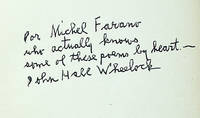 For Michel Farano
who actually knows
some of these poems by heart —
John Hall Wheelock